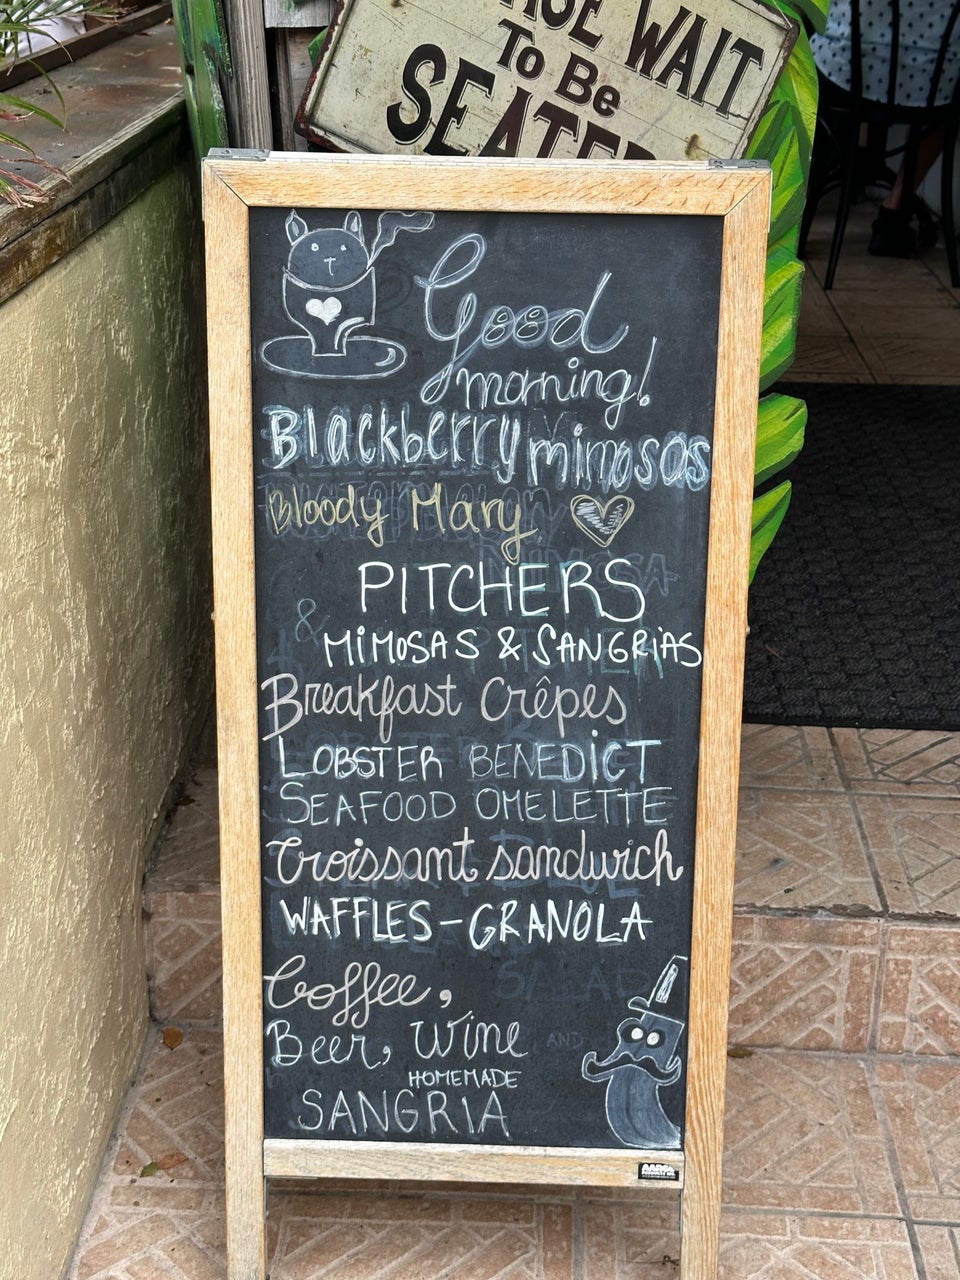 WAIT
To Be
SEATED
Good
morning!
Blackberry mimosas
Bloody Mary
PITCHERS
&
MIMOSAS & SANGRIAS
Breakfast Crêpes
LOBSTER BENEDICT
SEAFOOD OMELETTE
Croissant sandwich
WAFFLES - GRANOLA
Coffee,
Beer, Wine AND
HOMEMADE
SANGRIA